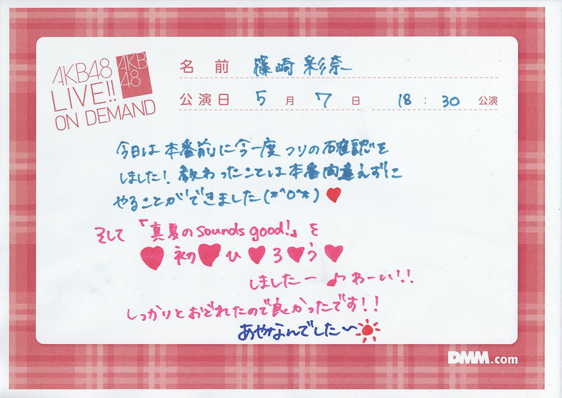 AKB48
LIVE!!
ON DEMAND
AKB
48
名前 篠崎彩奈
公演日 5月7日 18:30公演
今日は本番前に今一度フリの確認を
しました!教わったことは本番間違えずに
やることができました(*^o^*)♥
そして「真夏のsounds good!」を
♥初♥ひ♥ろ♥う♥
しましたー♪わーい!!
しっかりとおどれたので良かったです!!
あやなんでした〜☀
DMM.com